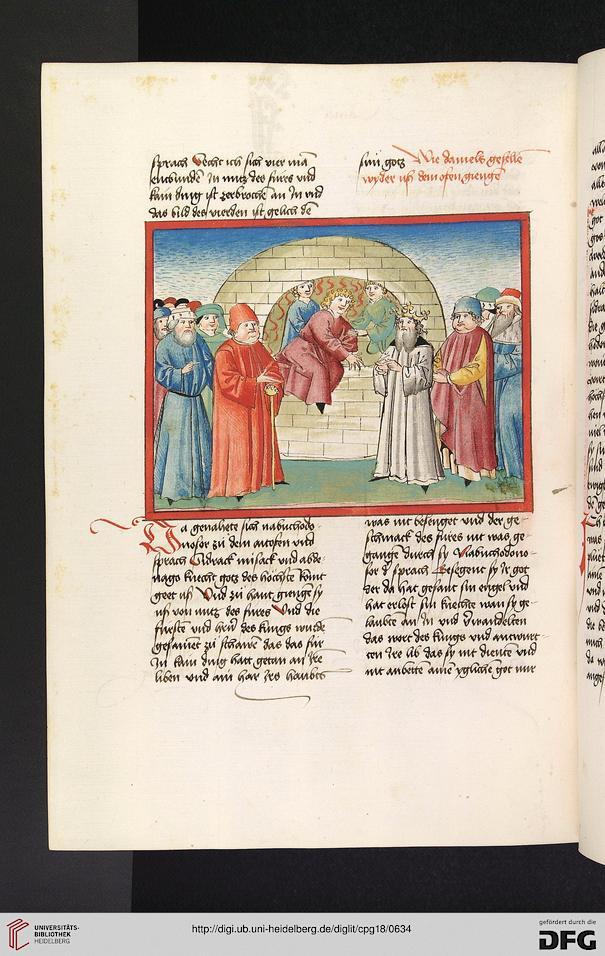 sprach Secht ich sich vier man
enbunden In mitz des fures vnd
kain ding ist zerbrochen an In vnd
das bild des vierden ist gelich dem
sun gotz Wie daniels gesellen
wyder uß dem ofen giengen
Da genahete sich nabuchodo-
nosor zü dem aitofen vnd
sprach Sidrack misack vnd abde-
nago knecht gotz des höchste kunt
geet uß Vnd zü hant giengen sy
uß von mitz des fures Vnd die
fürsten vnd herrn des kungs wurden
gesamet zü schawen das das für
In kain ding hatt getan an Iren
liben vnd ain har Ires houbts
was nit besenget vnd der ge-
schmack des fures nit was ge-
gangen durch sy Nabuchodono-
sor sprach Gesegent sy Ir got
der da hat gesant sin engel vnd
hat erlöst sin knechte wan sy ge-
laubten an In vnd verwandelten
das wort des kungs vnd antwurt-
ten Ire lib das sy nit dienten vnd
nit anbetten ainen yglichen got nur
UNIVERSITÄTS-
BIBLIOTHEK
HEIDELBERG
http://digi.ub.uni-heidelberg.de/diglit/cpg18/0634
gefördert durch die
DFG